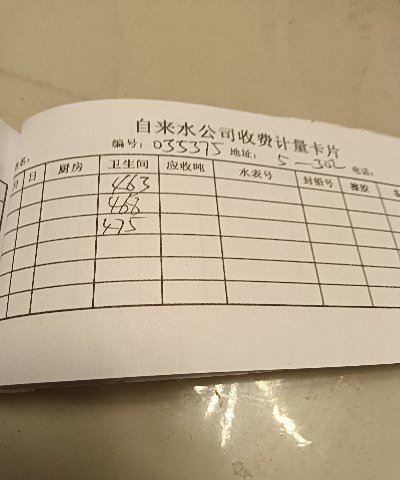 自来水公司收费计量卡片
编号: 035375 地址: 5-302 电话:
月 日 厨房 卫生间 应收吨 水表号 封铅号
463
468
475